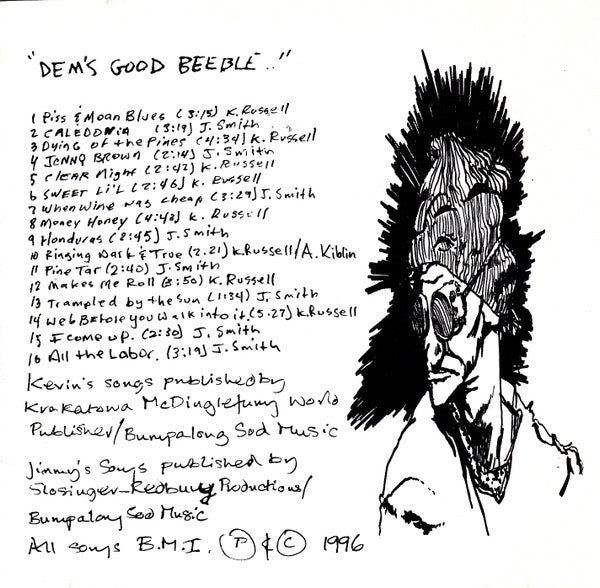 "DEM'S GOOD BEEBLE.."
1 Piss & Moan Blues (3:15) K. Russell
2 CALEDONIA (3:19) J. Smith
3 Dying of the Pines (4:34) K. Russell
4 JENNY BROWN (2:14) J. Smith
5 Clear Night (2:42) K. Russell
6 SWEET Li'L (2:46) K. Russell
7 When Wine was cheap (3:29) J. Smith
8 Money Honey (4:42) K. Russell
9 Honduras (2:45) J. Smith
10 Ringing Dark & True (2.21) K.Russell/A. Kiblin
11 Pine Tar (2:40) J. Smith
12 Makes Me Roll (3:50) K. Russell
13 Trampled by the Sun (1:34) J. Smith
14 Web Before you Walk into it. (5.27) K.Russell
15 I come up. (2:30) J. Smith
16 All the Labor. (3:19) J. Smith
Kevin's songs published by
Krakatowa McDinglefurny World
Publisher/Bumpalong Sod Music
Jimmy's Songs published by
Slosinger-Redbury Productions/
Bumpalong Sod Music
All songs B.M.I. Ⓟ & © 1996